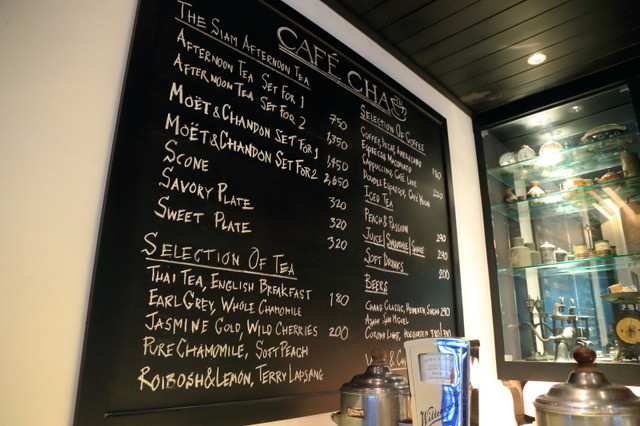 CAFÉ CHA
THE SIAM AFTERNOON TEA
AFTERNOON TEA SET FOR 1 750
AFTERNOON TEA SET FOR 2 1,350
MOËT & CHANDON SET FOR 1 1,450
MOËT & CHANDON SET FOR 2 2,650
SCONE 320
SAVORY PLATE 320
SWEET PLATE 320
SELECTION OF TEA
THAI TEA, ENGLISH BREAKFAST 180
EARL GREY, WHOLE CHAMOMILE
JASMINE GOLD, WILD CHERRIES 200
PURE CHAMOMILE, SOFT PEACH
ROIBOSH & LEMON, TERRY LAPSANG
SELECTION OF COFFEE
COFFEE, AMERICANO
ESPRESSO MACCHIATO
CAPPUCCINO, CAFÉ LATTE
DOUBLE ESPRESSO, CAFÉ MOCHA 220
ICED TEA
PEACH & PASSION
JUICE | SMOOTHIE | SHAKE 290
SOFT DRINKS 200
BEERS
CHANG CLASSIC, HEINEKEN, SINGHA 290
ASAHI, SAN MIGUEL
CORONA LIGHT, HOEGAARDEN